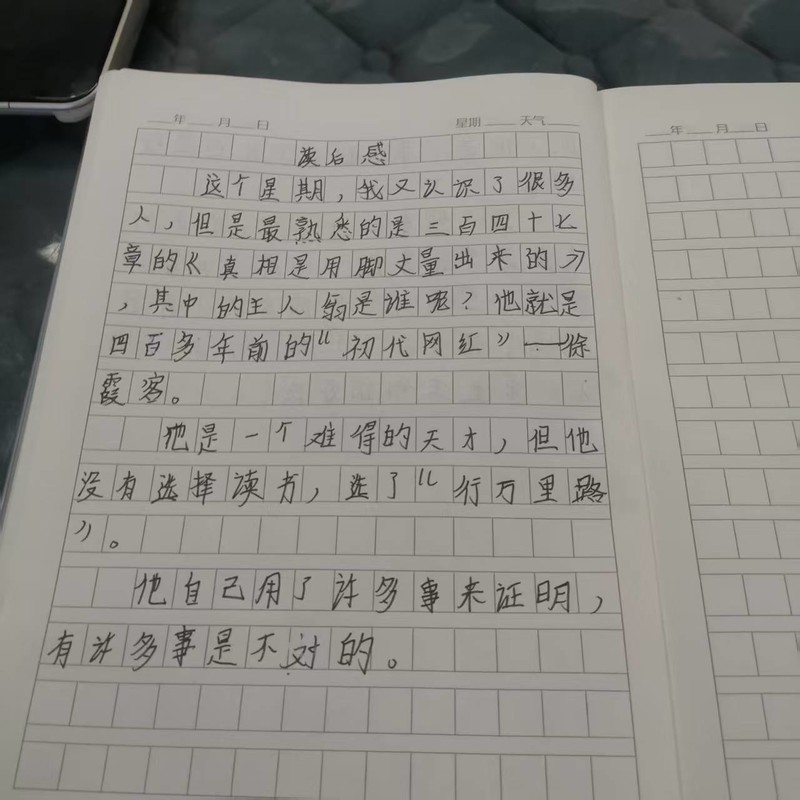 年 月 日 星期 天气
读后感
这个星期，我又认识了很多
人，但是最熟悉的是三百四十七
章的《真相是用脚丈量出来的》
，其中的主人翁是谁呢？他就是
四百多年前的“初代网红”——徐
霞客。
他是一个难得的天才，但他
没有选择读书，选了“行万里路
”。
他自己用了许多事来证明，
有许多事是不对的。
年 月 日